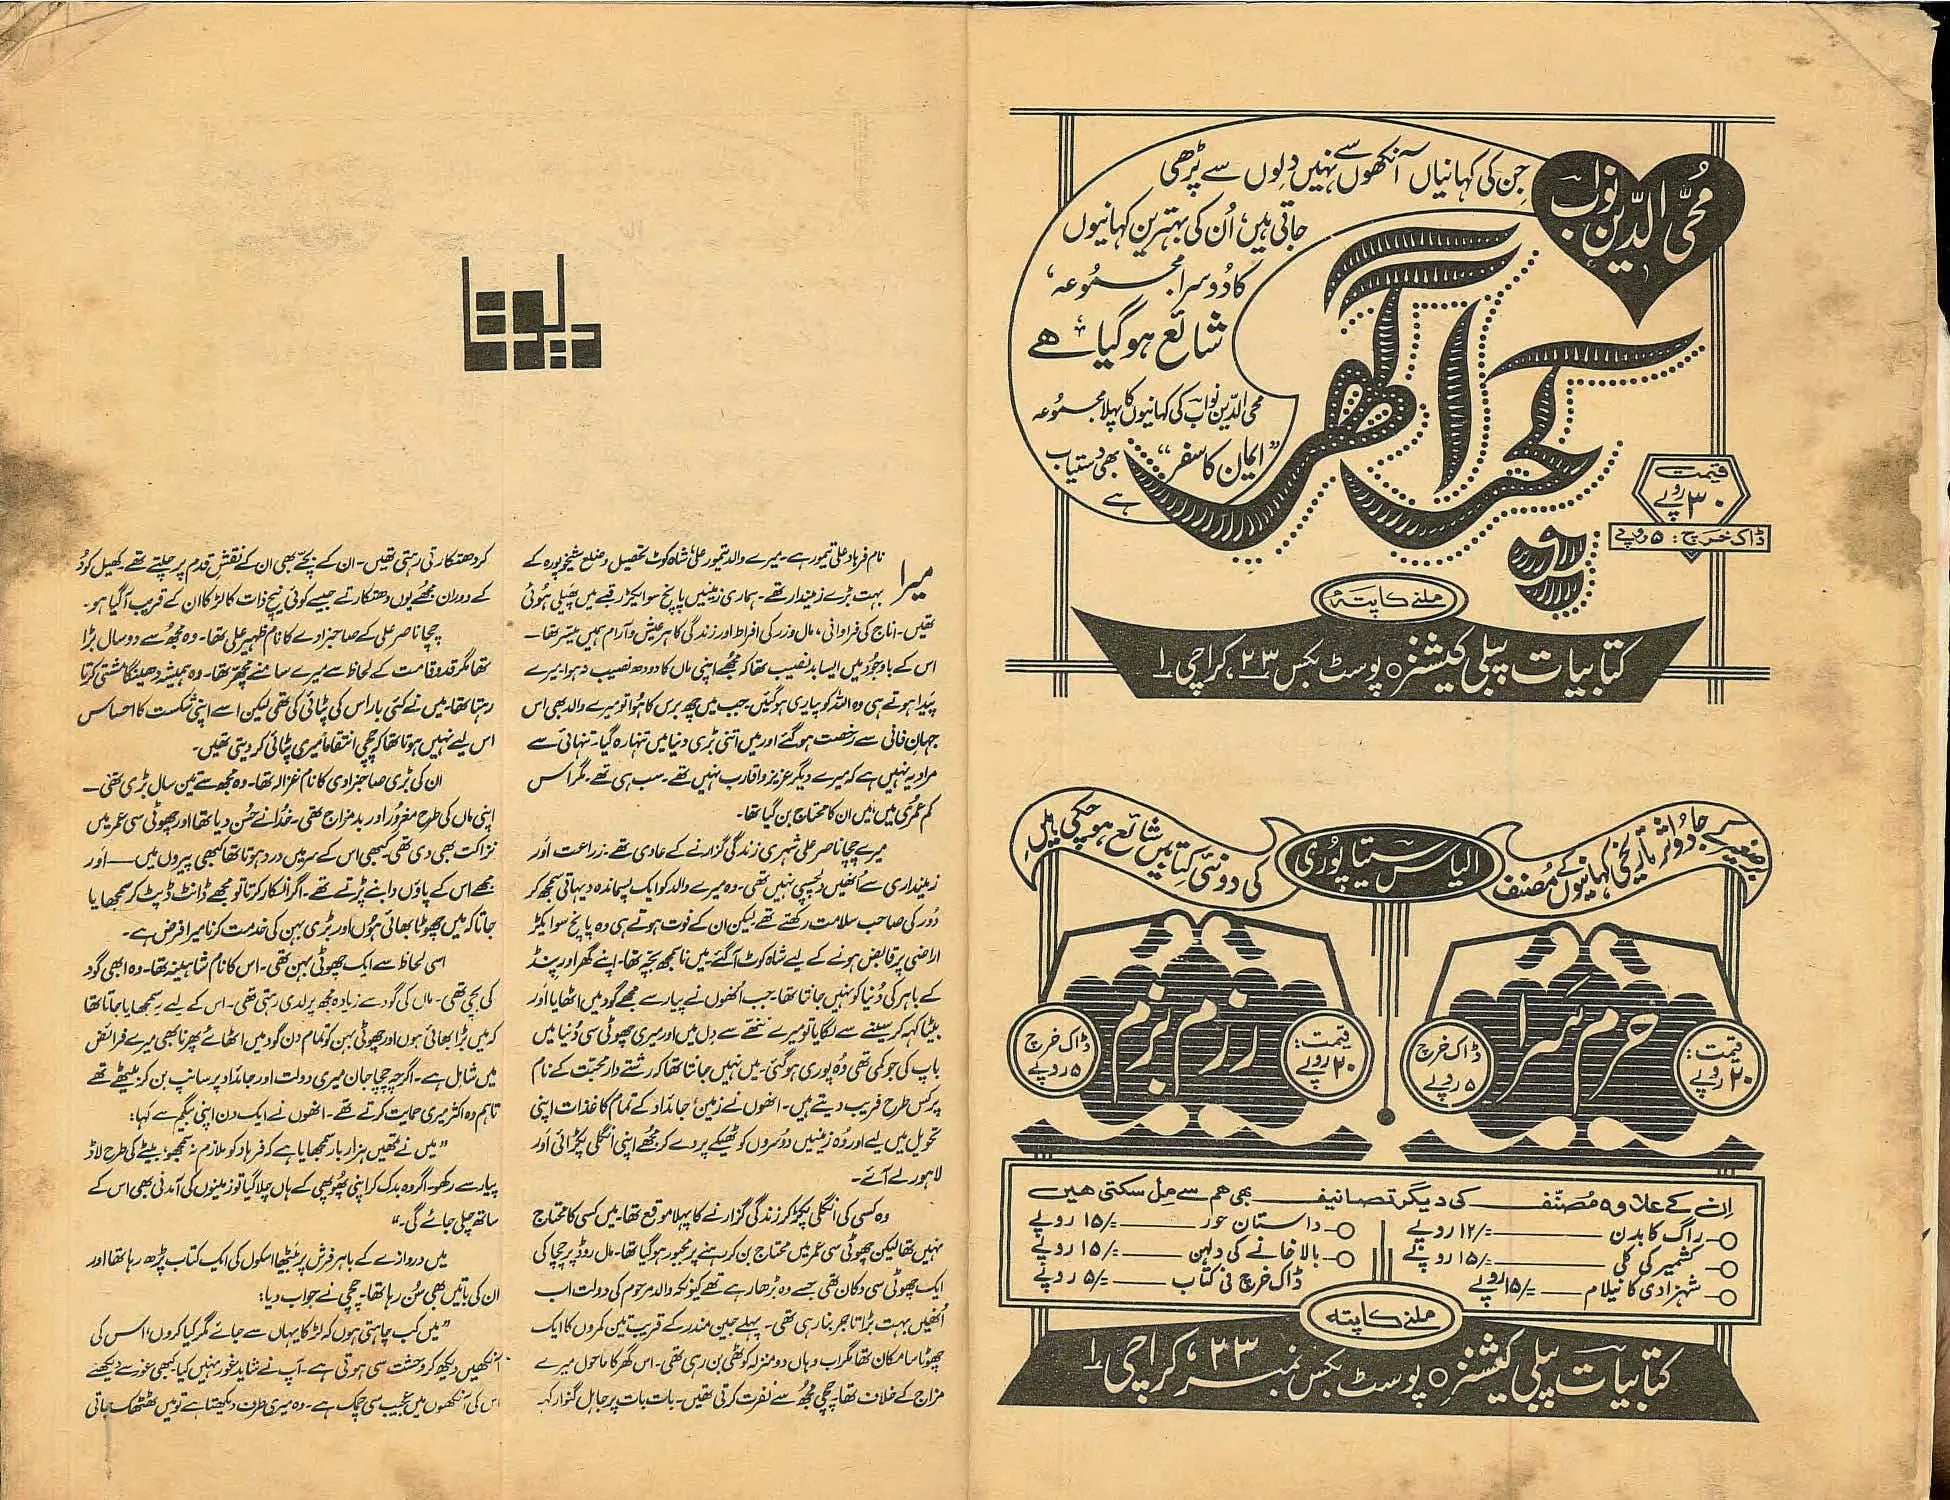 محی الدین نواب
جن کی کہانیاں آنکھوں سے نہیں دلوں سے پڑھی
جاتی ہیں، اُن کی بہترین کہانیوں
کا دوسرا مجموعہ،
شائع ہوگیا ہے
محی الدین نواب کی کہانیوں کا پہلا مجموعہ
”ایمان کا سفر“ بھی دستیاب
ہے
کچرا گھر
قیمت
۳۰ روپے
ڈاک خرچ: ۵ روپے
ملنے کا پتہ
کتابیات پبلی کیشنز ○ پوسٹ بکس ۲۳، کراچی ۱
برصغیر کے جادو اثر تاریخی کہانیوں کے مصنف
الیاس سیتاپوری
کی دو نئی کتابیں شائع ہوچکی ہیں۔
حرم سرا
قیمت:
۲۰ روپے
ڈاک خرچ
۵ روپے
رزم بزم
قیمت:
۲۰ روپے
ڈاک خرچ
۵ روپے
اِن کے علاوہ مُصَنّف کی دیگر تصانیف بھی ہم سے مل سکتی ہیں
○ راگ کا بدن ۱۲/= روپے
○ کشمیر کی کلی ۱۵/= روپے
○ شہزادی کا نیلام ۱۵/= روپے
○ داستان حور ۱۵/= روپے
○ بالا خانے کی دلہن ۱۵/= روپے
ڈاک خرچ فی کتاب ۵/= روپے
ملنے کا پتہ
کتابیات پبلی کیشنز ○ پوسٹ بکس نمبر ۲۳، کراچی ۱
دیوتا
میرا نام فرہاد علی تیمور ہے۔ میرے والد تیمور علی، شاہ کوٹ تحصیل و ضلع شیخوپورہ کے
بہت بڑے زمیندار تھے۔ ہماری زمینیں پانچ سو ایکڑ رقبے میں پھیلی ہوئی
تھیں۔ اناج کی فراوانی، مال و زر کی افراط اور زندگی کا ہر عیش و آرام ہمیں میسر تھا۔
اس کے باوجود میں ایسا بدنصیب تھا کہ مجھے اپنی ماں کا دودھ نصیب نہ ہوا، میرے
پیدا ہوتے ہی وہ اللہ کو پیاری ہوگئیں۔ جب میں چھ برس کا ہوا تو میرے والد بھی اس
جہانِ فانی سے رخصت ہوگئے اور میں اتنی بڑی دنیا میں تنہا رہ گیا۔ تنہائی سے
مراد یہ نہیں ہے کہ میرے دیگر عزیز و اقارب نہیں تھے۔ سب ہی تھے۔ مگر اس
کم عمری میں، میں ان کا محتاج بن گیا تھا۔
میرے چچا ناصر علی شہری زندگی گزارنے کے عادی تھے۔ زراعت اور
زمینداری سے اُنھیں دلچسپی نہیں تھی۔ وہ میرے والد کو ایک پسماندہ دیہاتی سمجھ کر
دُور کی صاحب سلامت رکھتے تھے لیکن ان کے فوت ہوتے ہی وہ پانچ سو ایکڑ
اراضی پر قابض ہونے کے لیے شاہ کوٹ آگئے۔ میں ناسمجھ بچہ تھا۔ اپنے گھر اور پنڈ
کے باہر کی دُنیا کو نہیں جانتا تھا۔ جب اُنھوں نے پیار سے مجھے گود میں اٹھایا اور
بیٹا کہہ کر سینے سے لگایا تو میرے ننھے سے دل میں اور میری چھوٹی سی دُنیا میں
باپ کی جو کمی تھی وہ پوری ہوگئی۔ میں نہیں جانتا تھا کہ رشتے دار محبت کے نام
پر کس طرح فریب دیتے ہیں۔ انھوں نے زمین، جائداد کے تمام کاغذات اپنی
تحویل میں لیے اور وہ زمینیں دوسروں کو ٹھیکے پر دے کر مجھے اپنی انگلی پکڑائی اور
لاہور لے آئے۔
وہ کسی کی انگلی پکڑ کر زندگی گزارنے کا پہلا موقع تھا۔ میں کسی کا محتاج
نہیں تھا لیکن چھوٹی سی عمر میں محتاج بن کر رہنے پر مجبور ہوگیا تھا۔ مال روڈ پر چچا کی
ایک چھوٹی سی دکان تھی جسے وہ بڑھا رہے تھے کیونکہ والد مرحوم کی دولت اب
اُنھیں بہت بڑا تاجر بنا رہی تھی۔ پہلے جین مندر کے قریب تین کمروں کا ایک
چھوٹا سا مکان تھا مگر اب وہاں دو منزلہ کوٹھی بن رہی تھی۔ اس گھر کا ماحول میرے
مزاج کے خلاف تھا۔ چچی مجھ سے نفرت کرتی تھیں۔ بات بات پر جاہل گنوار کہہ
کر دھتکارتی رہتی تھیں۔ ان کے بچے بھی ان کے نقشِ قدم پر چلتے تھے۔ کھیل کود
کے دوران مجھے یوں دھتکارتے جیسے کوئی نیچ ذات کا لڑکا ان کے قریب آگیا ہو۔
چچا ناصر علی کے صاحبزادے کا نام ظہیر علی تھا۔ وہ مجھ سے دو سال بڑا
تھا مگر قد و قامت کے لحاظ سے میرے سامنے مچھر تھا۔ وہ ہمیشہ دھینگا مشتی کرتا
رہتا تھا۔ میں نے کئی بار اس کی پٹائی کی تھی لیکن اسے اپنی شکست کا احساس
اس لیے نہیں ہوتا تھا کہ چچی انتقاماً میری پٹائی کر دیتی تھیں۔
ان کی بڑی صاحبزادی کا نام غزالہ تھا۔ وہ مجھ سے تین سال بڑی تھی۔
اپنی ماں کی طرح مغرور اور بدمزاج تھی۔ خدا نے حسن دیا تھا اور چھوٹی سی عمر میں
نزاکت بھی دی تھی۔ کبھی اس کے سر میں درد ہوتا تھا کبھی پیروں میں — اور
مجھے اس کے پاؤں دابنے پڑتے تھے۔ اگر انکار کرتا تو مجھے ڈانٹ ڈپٹ کر سمجھایا
جاتا کہ میں چھوٹا بھائی ہوں اور بڑی بہن کی خدمت کرنا میرا فرض ہے۔
اسی لحاظ سے ایک چھوٹی بہن تھی۔ اس کا نام شاہینہ تھا۔ وہ ابھی گود
کی بچی تھی۔ ماں کی گود سے زیادہ مجھ پر لدی رہتی تھی۔ اس کے لیے یہ سمجھایا جاتا تھا
کہ میں بڑا بھائی ہوں اور چھوٹی بہن کو تمام دن گود میں اٹھائے پھرنا بھی میرے فرائض
میں شامل ہے۔ اگرچہ چچا جان میری دولت اور جائداد پر سانپ بن کر بیٹھے تھے
تاہم وہ اکثر میری حمایت کرتے تھے۔ انھوں نے ایک دن اپنی بیگم سے کہا:
”میں نے تمھیں ہزار بار سمجھایا ہے کہ فرہاد کو ملازم نہ سمجھو، بیٹے کی طرح لاڈ
پیار سے رکھو۔ اگر وہ بدک کر اپنی پھوپھی کے ہاں چلا گیا تو زمینوں کی آمدنی بھی اس کے
ساتھ چلی جائے گی۔“
میں دروازے کے باہر فرش پر بیٹھا اسکول کی ایک کتاب پڑھ رہا تھا اور
ان کی باتیں بھی سُن رہا تھا۔ چچی نے جواب دیا:
”میں کب چاہتی ہوں کہ لڑکا یہاں سے جائے مگر کیا کروں، اس کی
آنکھیں دیکھ کر وحشت سی ہوتی ہے۔ آپ نے شاید غور نہیں کیا کبھی غور سے دیکھیے
اس کی آنکھوں میں عجیب سی چمک ہے۔ وہ میری طرف دیکھتا ہے تو میں ٹھٹھک جاتی